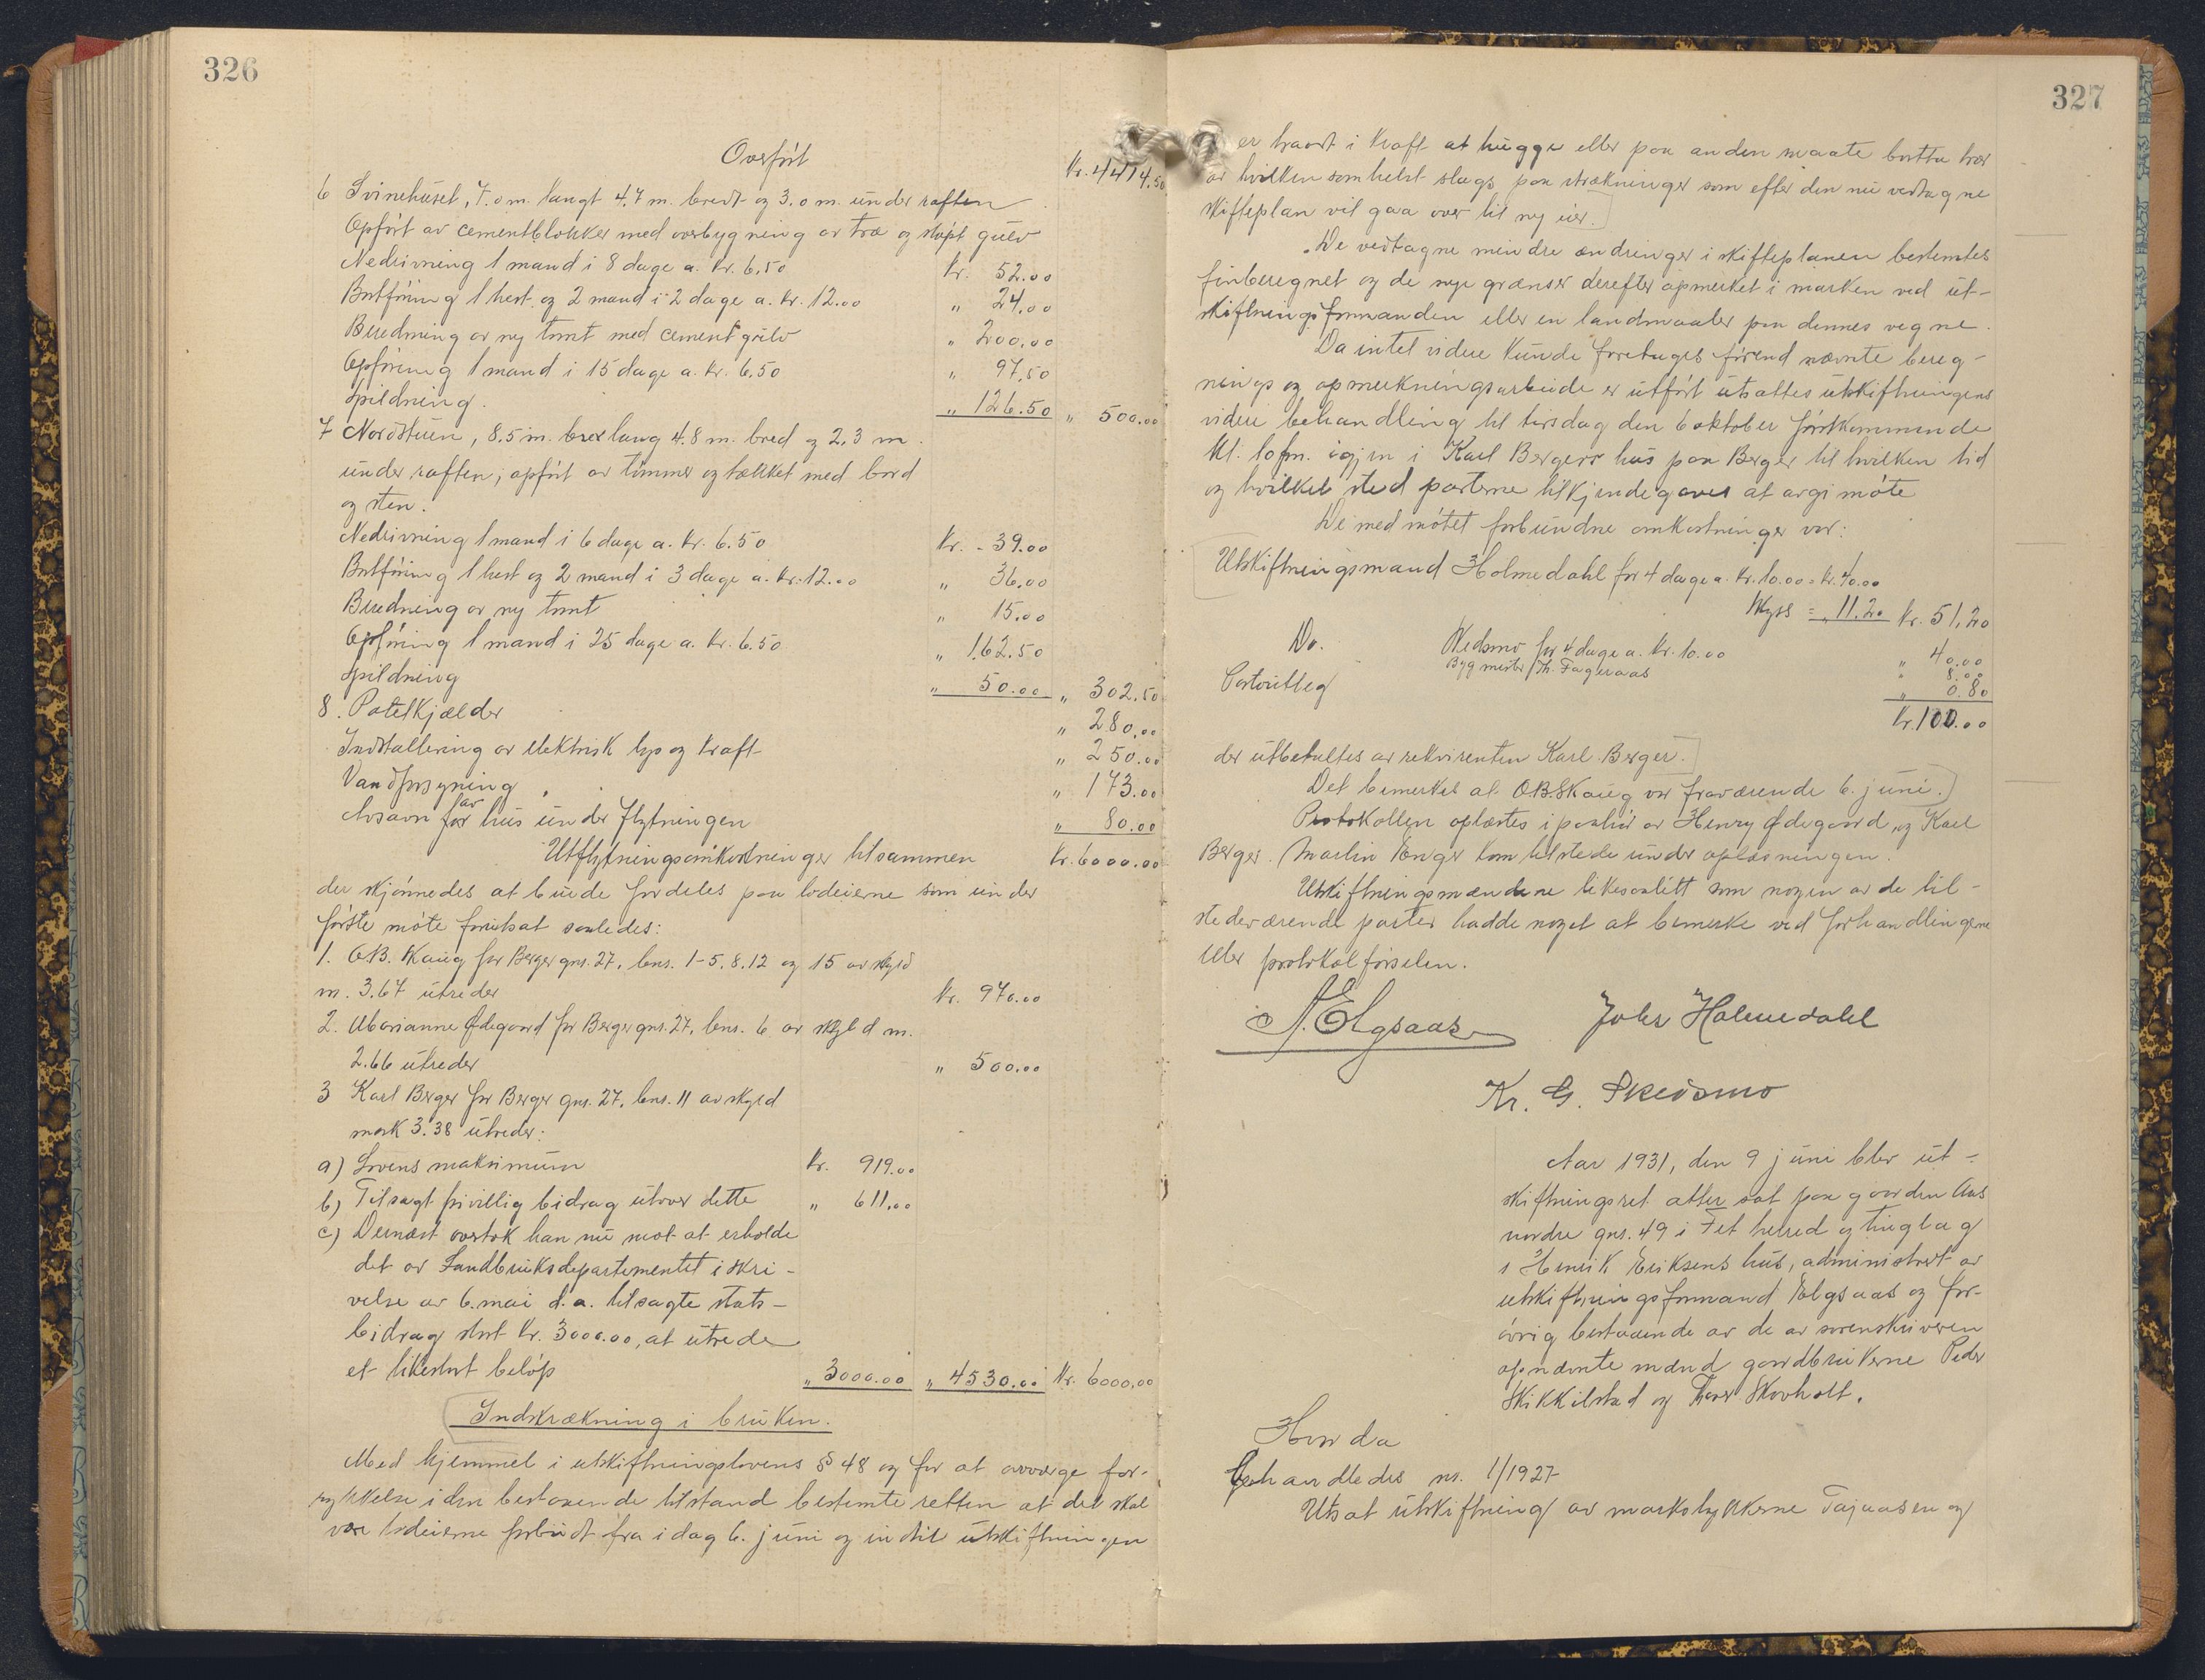 326
Overført Kr. 4414.50
6 Svinehuset, 7.0 m. langt 4.7 m. bredt og 3.0 m. under raften
Opført av cementblokker med overbygning av træ og støpt gulv
Nedrivning 1 mand i 8 dage a. kr. 6.50 Kr. 52.00
Bortføring 1 hest og 2 mand i 2 dage a. kr. 12.00 " 24.00
Beredning av ny tomt med cementgulv " 200.00
Opføring 1 mand i 15 dage a. kr. 6.50 " 97.50
Spildning. " 126.50 " 500.00
7 Nordstuen, 8.5 m. lang 4.8 m. bred og 2.3 m.
under raften, opført av tømmer og tækket med bord
og sten.
Nedrivning 1 mand i 6 dage a. kr. 6.50 Kr. 39.00
Bortføring 1 hest og 2 mand i 3 dage a. kr. 12.00 " 36.00
Beredning av ny tomt " 15.00
Opføring 1 mand i 25 dage a. kr. 6.50 " 162.50
Spildning " 50.00 " 302.50
8. Potetkjælder " 280.00
Indstallering av elektrisk lys og kraft " 250.00
Vandforsyning " 173.00
Avsavn av hus under flytningen " 80.00
Utflytningsomkostninger tilsammen Kr. 6000.00
der skjønnedes at burde fordeles paa lodeierne som under
første møte forutsat saaledes:
1. O.B. Skaug for Berger gnr. 27, bnr. 1-5, 8, 12 og 15 av skyld
m. 3.67 utreder Kr. 970.00
2. Marianne Ødegaard for Berger gnr. 27, bnr. 6 av skyld m.
2.66 utreder " 500.00
3 Karl Berger for Berger gnr. 27, bnr. 11 av skyld
mark 3.38 utreder:
a) Lovens maksimum Kr. 919.00
b) Tilsagt frivillig bidrag utover dette " 611.00
c) Dernæst overtok han nu mot at erholde
det av Landbruksdepartementet i skri-
velse av 6. mai d.a. tilsagte stats-
bidrag stort kr. 3000.00, at utrede
et likestort beløp " 3000.00 " 4530.00 Kr. 6000.00
Indskrækning i bruken.
Med hjemmel i utskiftningslovens § 48 og for at avværge for-
rykkelse i den bestaaende tilstand bestemte retten at det skal
være lodeierne forbudt fra idag 6. juni og indtil utskiftningen
327
er traadt i kraft at hugge eller paa anden maate bortta trær
av hvilken somhelst slags paa strækninger som efter den nu vedtagne
skifteplan vil gaa over til ny eier.
De vedtagne mindre ændringer i skifteplanen bestemtes
finberegnet og de nye grænser derefter opmerket i marken ved ut-
skiftningsformanden eller en landmaaler paa dennes vegne.
Da intet videre kunde foretages førend nævnte bereg-
nings og opmerkningsarbeide er utført utsattes utskiftningens
videre behandling til tirsdag den 6 oktober førstkommende
kl. 10 fm. igjen i Karl Bergers hus paa Berger til hvilken tid
og hvilket sted parterne tilkjendegaves at avgi møte
De med møtet forbundne omkostninger var:
Utskiftningsmand Holmedahl for 4 dage a. kr. 10.00 = kr. 40.00
Skyss = " 11.20 Kr. 51.20
Do. Skedsmo for 4 dage a. kr. 10.00 " 40.00
Bygmester Th. Fageraas " 8.00
Portoutlæg " 0.80
Kr. 100.00
der utbetaltes av rekvirenten Karl Berger.
Det bemerkes at O.B. Skaug var fraværende 6. juni.
Protokollen oplæstes i paahør av Henry Ødegaard, og Karl
Berger. Martin Enger kom tilstede under oplæsningen.
Utskiftningsmændene likesaalitt som nogen av de til-
stedeværende parter hadde noget at bemerke ved forhandlingerne
eller protokolførselen.
A. Elgsaas Johs Holmedahl
Kr. G. Skedsmo
Aar 1931, den 9 juni blev ut-
skiftningsret atter sat paa gaarden Aas
nordre gnr. 49 i Fet herred og tinglag
i Henrik Eriksens hus, administrert av
utskiftningsformand Elgsaas og for-
øvrig bestaaende av de av sorenskriveren
opnævnte mænd gaardbrukerne Peder
Skikkilstad og Thorer Skovholt.
Hvor da
Behandledes nr. 1/1927
Utsat utskiftning av markstykkerne Tajaasen og